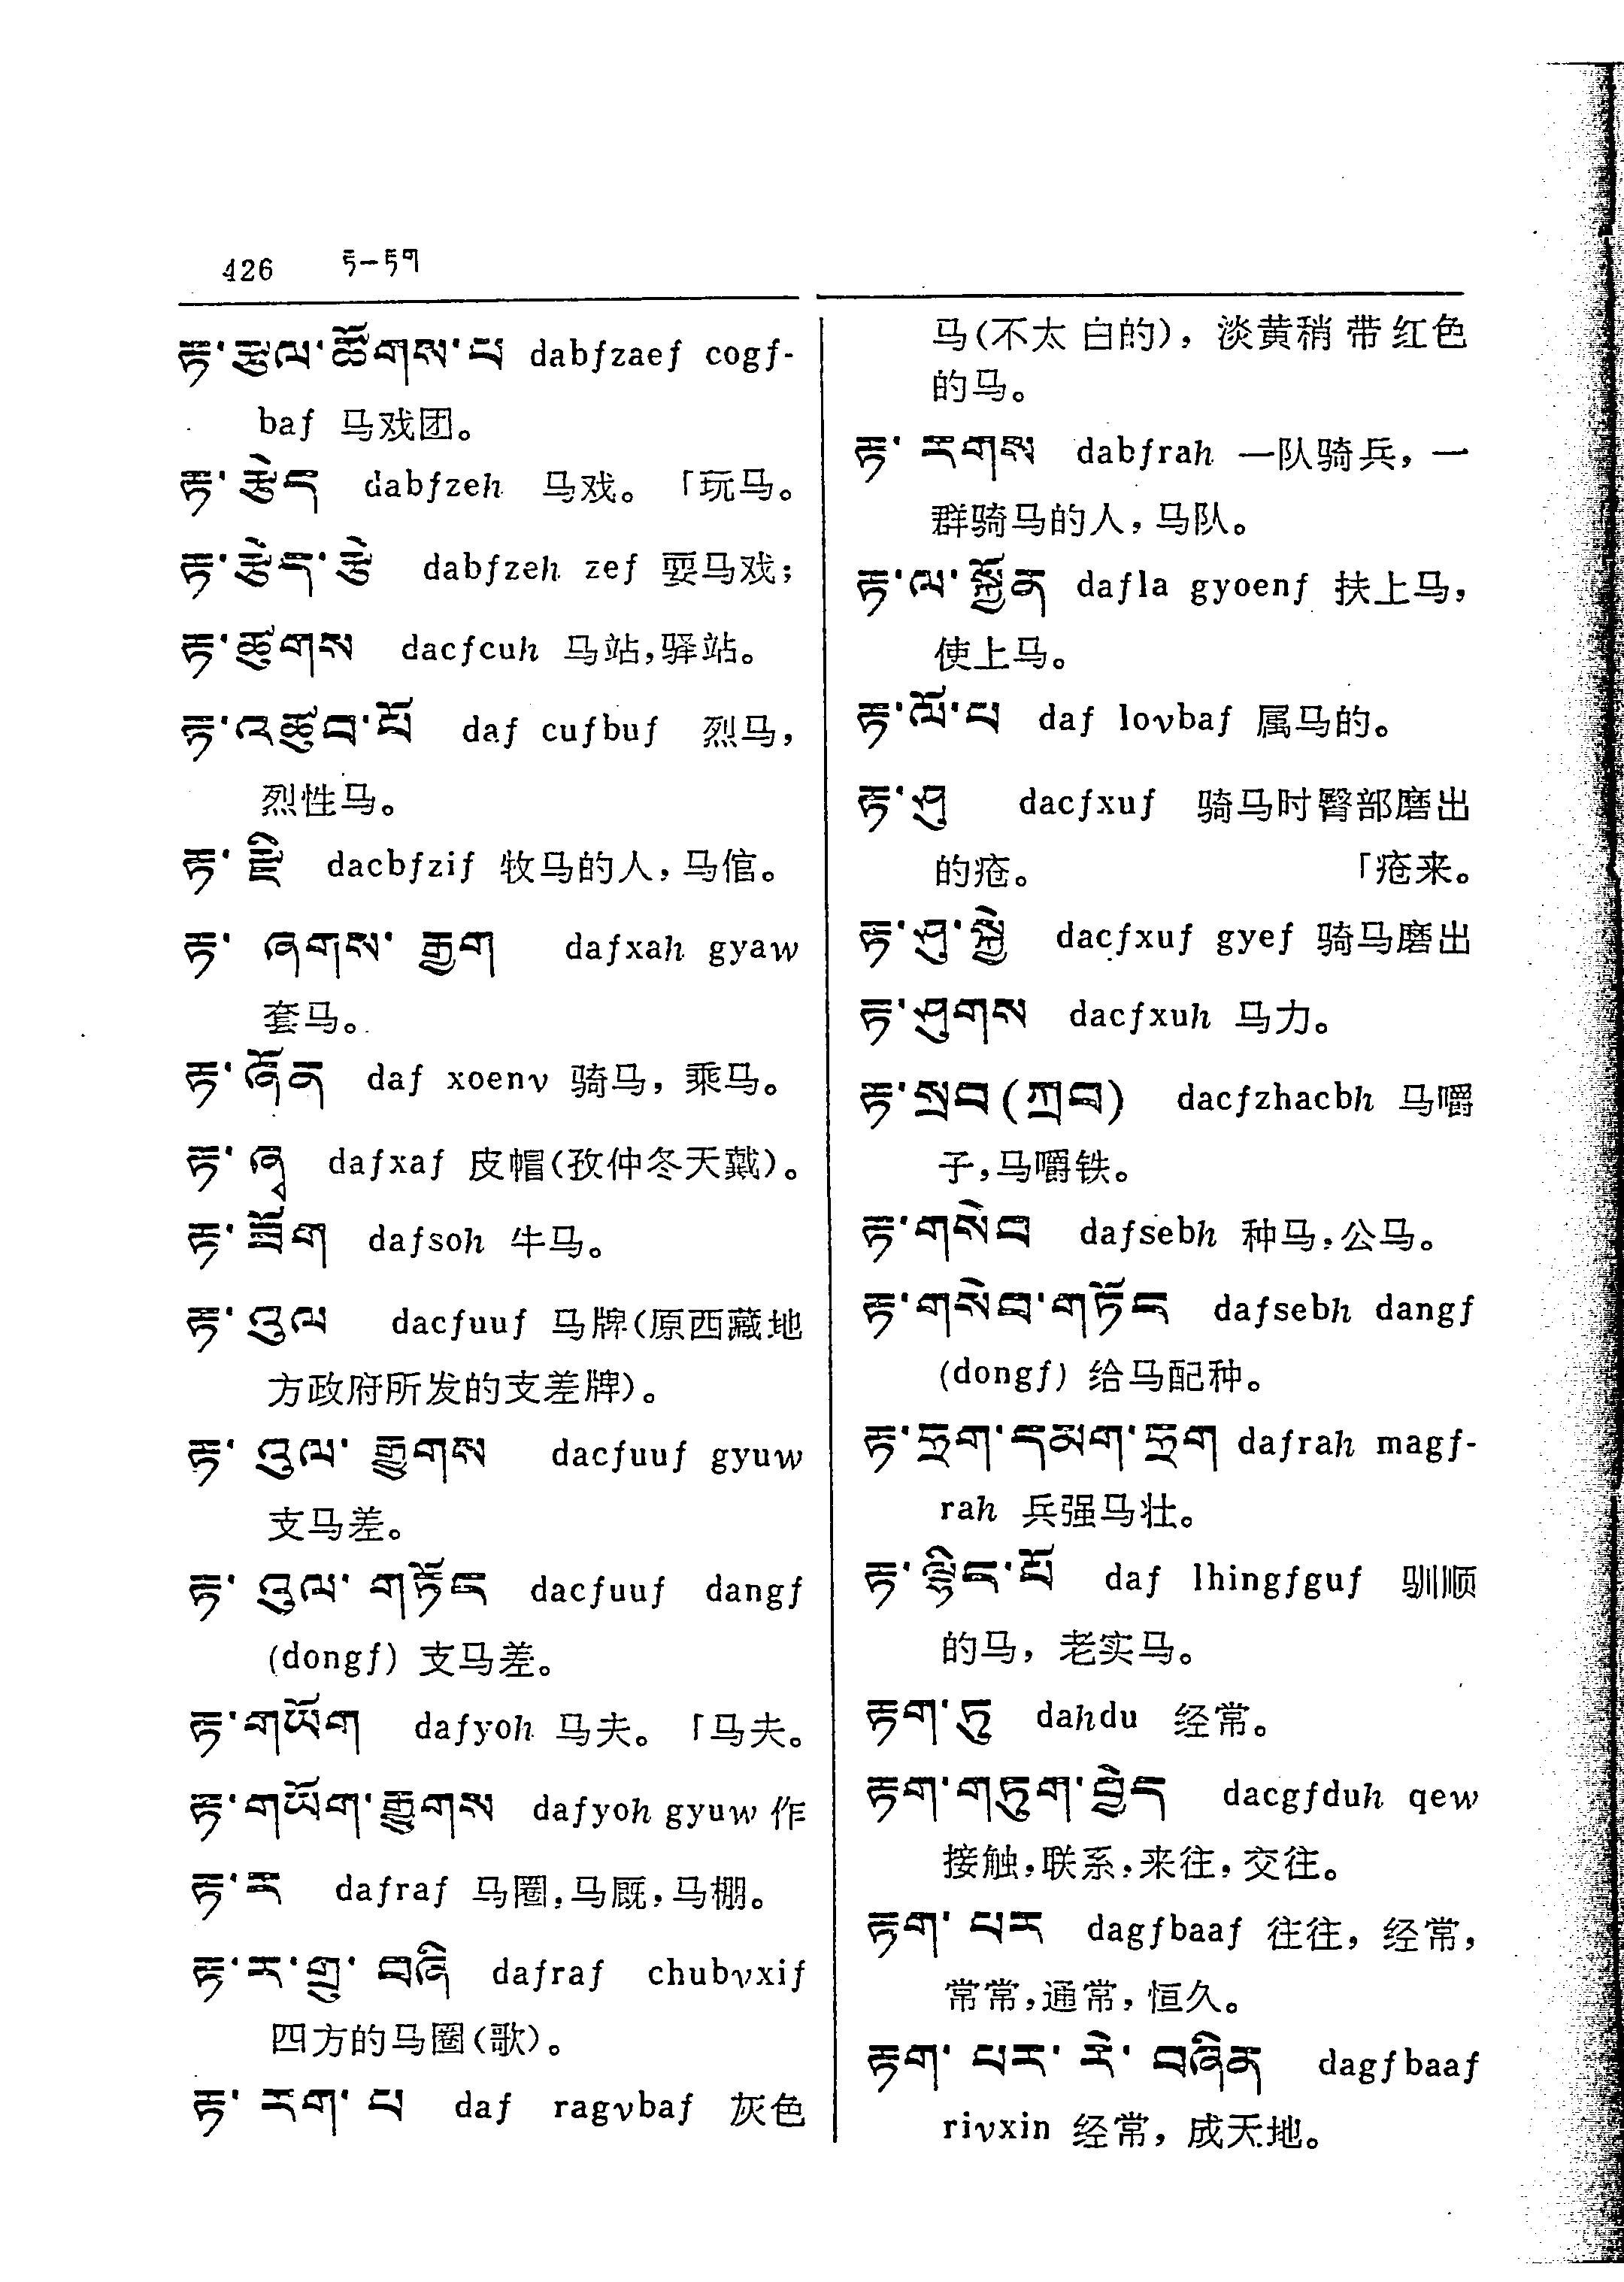 426 རྟ—རྟག
རྟ་རྩལ་ཚོགས་པ dabfzaef cogf-
baf 马戏团。
རྟ་རྩེད dabfzeh 马戏。「玩马。
རྟ་རྩེད་རྩེ dabfzeh zef 耍马戏;
རྟ་ཚུགས dacfcuh 马站,驿站。
རྟ་འཚུབ་པོ daf cufbuf 烈马,
烈性马。
རྟ་རྫི dacbfzif 牧马的人,马倌。
རྟ་ ཞགས་ རྒྱག dafxah gyaw
套马。
རྟ་ཞོན daf xoenv 骑马,乘马。
རྟ་ ཞྭ dafxaf 皮帽(孜仲冬天戴)。
རྟ་ཟོག dafsoh 牛马。
རྟ་ འུལ dacfuuf 马牌(原西藏地
方政府所发的支差牌)。
རྟ་ འུལ་ རྒྱུགས dacfuuf gyuw
支马差。
རྟ་ འུལ་ གཏོང dacfuuf dangf
(dongf) 支马差。
རྟ་གཡོག dafyoh 马夫。「马夫。
རྟ་གཡོག་རྒྱུགས dafyoh gyuw 作
རྟ་ར dafraf 马圈,马厩,马棚。
རྟ་ར་གྲུ་ བཞི dafraf chubvxif
四方的马圈(歌)。
རྟ་ རག་ པ daf ragvbaf 灰色
马(不太白的),淡黄稍带红色
的马。
རྟ་ རགས dabfrah 一队骑兵,一
群骑马的人,马队。
རྟ་ལ་སྐྱོན dafla gyoenf 扶上马,
使上马。
རྟ་ལོ་པ daf lovbaf 属马的。
རྟ་ཤུ dacfxuf 骑马时臀部磨出
的疮。 「疮来。
རྟ་ཤུ་སྐྱེ dacfxuf gyef 骑马磨出
རྟ་ཤུགས dacfxuh 马力。
རྟ་སྲབ(ཀྲབ) dacfzhacbh 马嚼
子,马嚼铁。
རྟ་གསེབ dafsebh 种马,公马。
རྟ་གསེབ་གཏོང dafsebh dangf
(dongf) 给马配种。
རྟ་ཧྲག་དམག་ཧྲག dafrah magf-
rah 兵强马壮。
རྟ་ལྷིང་པོ daf lhingfguf 驯顺
的马,老实马。
རྟག་ཏུ dahdu 经常。
རྟག་གཏུག་བྱེད dacgfduh qew
接触,联系,来往,交往。
རྟག་ པར dagfbaaf 往往,经常,
常常,通常,恒久。
རྟག་ པར་ རེ་ བཞིན dagfbaaf
rivxin 经常,成天地。